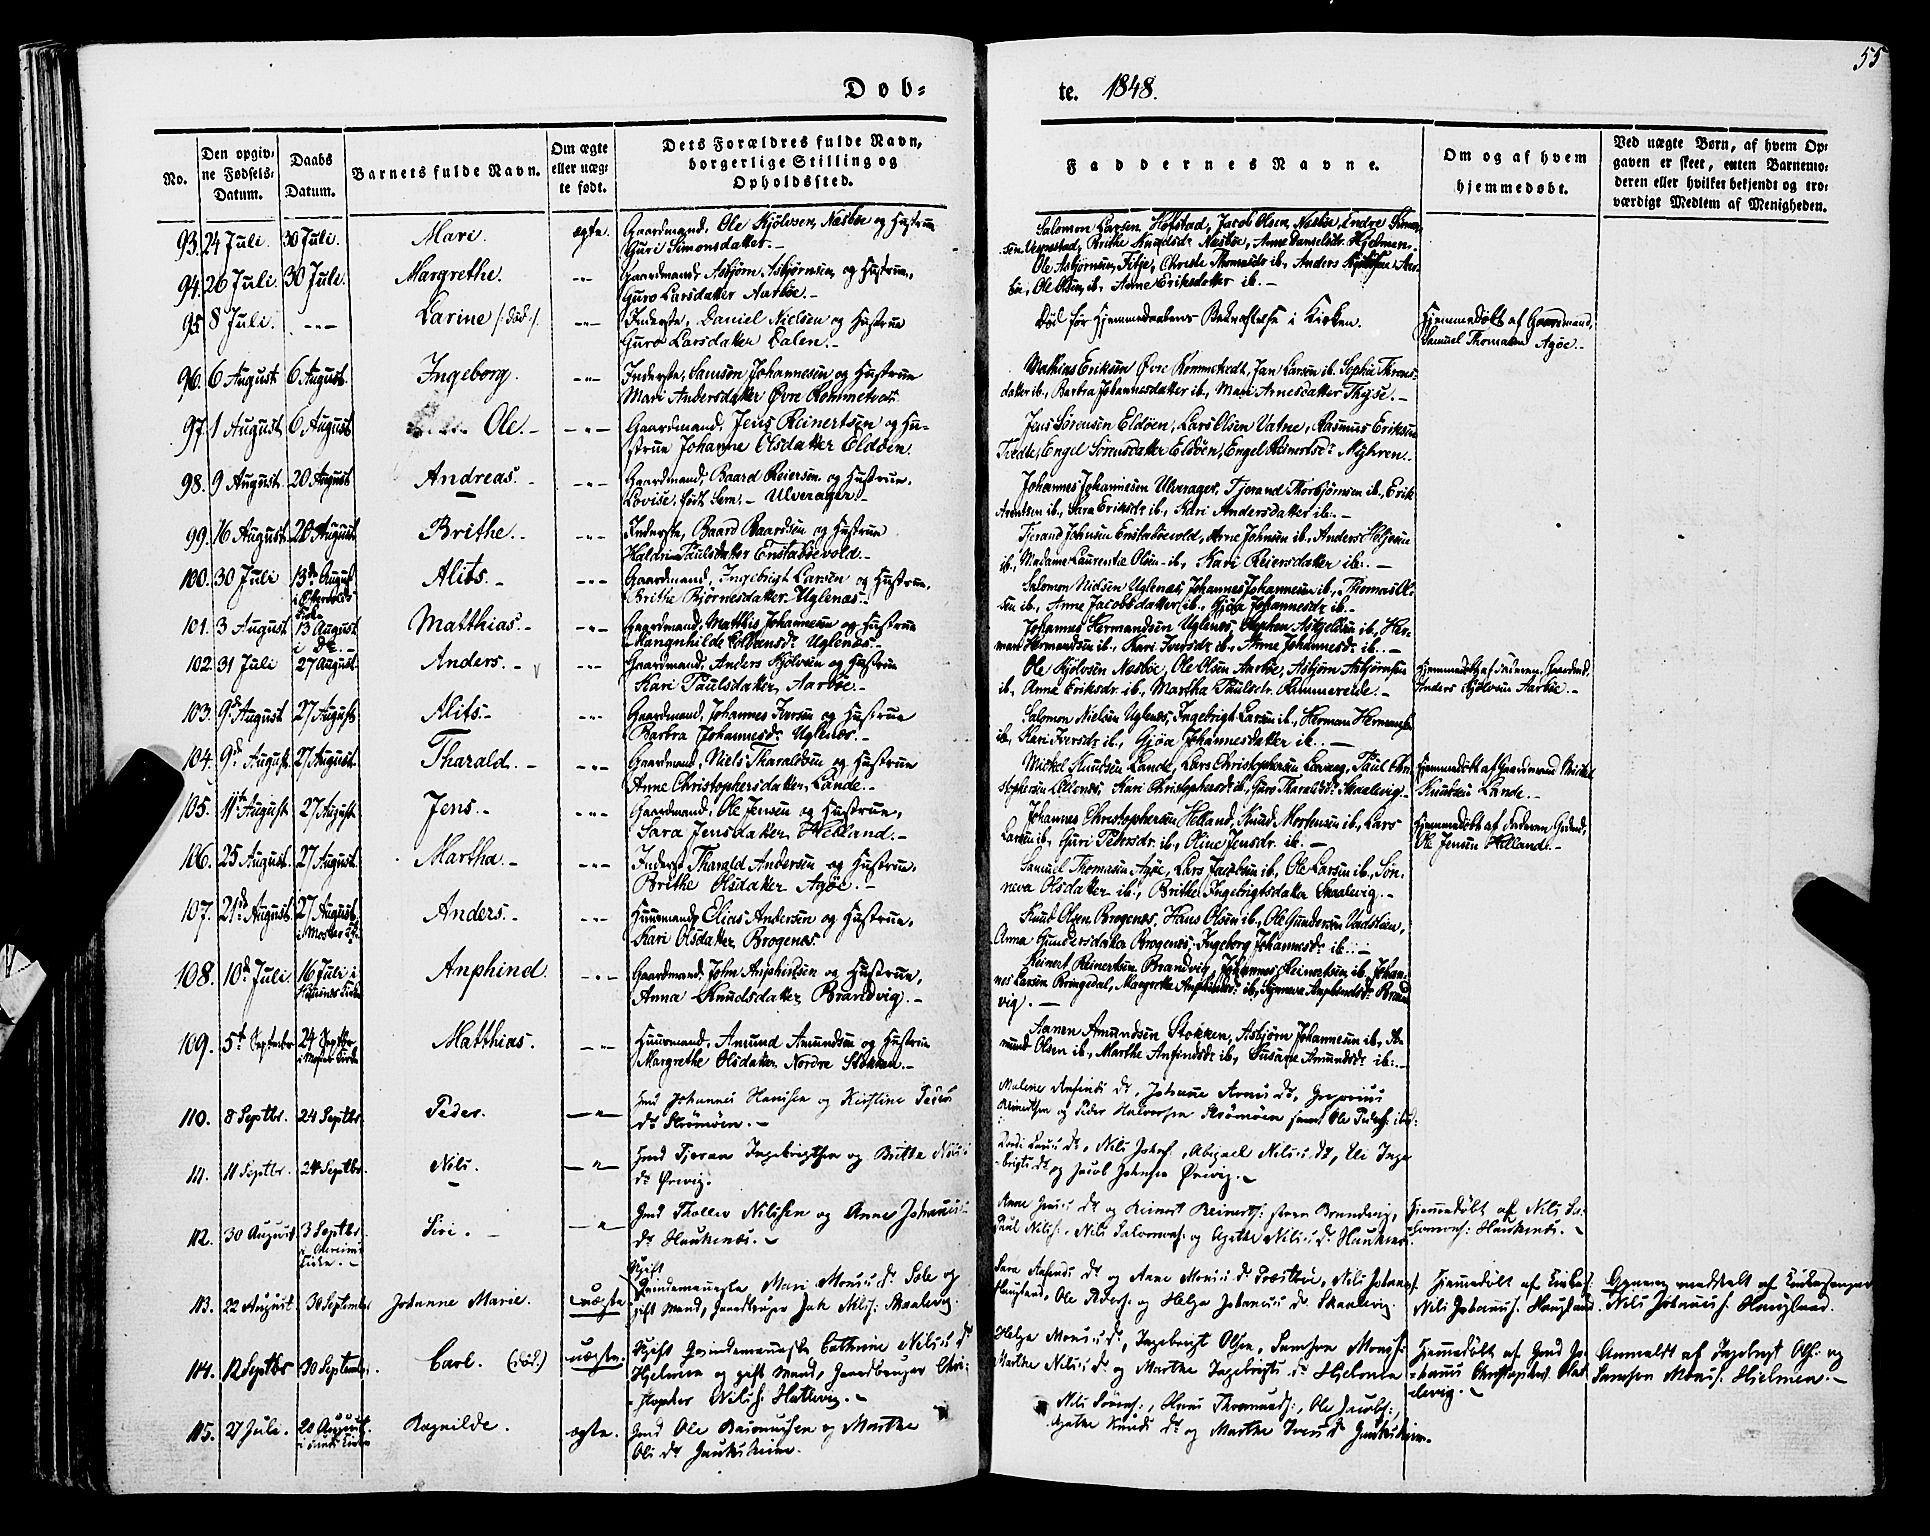 55
Døb-
te. 1848.
No.
Den opgiv-
ne Fødsels-
Datum.
Daabs
Datum.
Barnets fulde Navn.
Om ægte
eller uæg-
te født.
Dets Forældres fulde Navn,
borgerlige Stilling og
Opholdssted.
Faddernes Navne.
Om og af hvem
hjemmedøbt.
Ved uægte Børn, af hvem Op-
gaven er skeet, enten Barnemo-
deren eller hvilket bekjendt og tro-
værdigt Medlem af Menigheden.
93. 24 Juli. 30 Juli. Mari. ægte. Gaardmand, Ole Kjølvsen, Næsbøe og Hustrue
Guri Simonsdatter.-
Salomon Larsen, Hofstad, Jacob Olsen, Næsbøe, Endre
Brithe Knudsdr Næsbøe, Anne Danielsdr Hjelmen.-
94. 26 Juli. 30 Juli. Margrethe. -"- Gaardmand, Asbjørn Asbjørnsen og Hustrue,
Guro Larsdatter Aarbøe.-
Ole Asbjørnsen, Fitje, Christe Thomasdr ib., Anders Kjølvsen Aar-
bøe, Ole Olsen, ib., Anne Eriksdatter ib.-
95 8 Juli. -"- Larine /:død:/. -"- Inderste, Daniel Nielsen og Hustrue
Guro Larsdatter Dalen.-
Død før Hjemmedaabens Bekræftelse i Kirken.
Hjemmedøbt af Gaardmand,
Samuel Thomasen Agøe.-
96. 6 August 6 August. Ingeborg. -"- Inderste, Samson Johannesen og Hustrue
Mari Andersdatter Øvre Rommetvedt
Mathias Eriksen Øvre Rommetvedt, Jan Larsen ib. Sophia Thomas-
datter ib., Barbra Johannesdatter ib., Mari Arnesdatter Thyse.-
97. 1 August. 6 August Ole.- -"- Gaardmand, Jens Reinertsen og Hu-
strue Johanne Olsdatter Eldøen.
Jens Sørensen Eldøen, Lars Olsen Vatne, Rasmus Eriksen
Tvedte, Engel Sørensdatter Eldøen, Engel Reinertsdr Myhren.-
98. 9 August. 20 August Andreas.- -"- Gaardmand, Baard Reiersen og Hustrue,
Lovise, født Sem.- Ulverager.-
Johannes Johannesen Ulverager, Tjerand Thorbjørnsen ib., Erik
Arentsen ib., Sara Eriksdr ib., Kari Andersdatter ib.-
99. 16 August. 20 August Brithe.- -"- Inderste, Baard Baardsen og Hustrue
Paulsdatter Enstabøevold.-
Tjerand Johnsen Enstabøevold, Arne Johnsen ib., Anders Helgesen
ib., Madame Laurentia Olsen ib., Kari Reiersdatter ib.-
100. 30 Juli 13de August Alits.- -"- Gaardmand, Ingebrigt Larsen og Hustrue,
Brithe Bjørnesdatter Uglenæs.-
Salomon Nielsen Uglenæs, Johannes Johannesen ib., Thomas Ol-
sen ib., Anne Jacobsdatter ib., Gjøa Johannesdr ib.-
101. 3 August 13 August Matthias.- -"- Gaardmand, Matthis Johannesen og Hustrue
Mangnhilde Uglenæs.-
Johannes Hermandsen Uglenæs, Stephen ib., Her-
man Hermandsen ib., Kari Iversdr ib., Anne Johannesdr ib.-
102 31 Juli 27 August Anders.- -"- Gaardmand, Anders Kjølvsen og Hustrue
Kari Paulsdatter, Aarbøe.-
Ole Kjølvsen Næsbøe, Ole Olsen Aarbøe, Asbjørn Asbjørnsen
ib., Anna Eriksdr ib., Martha Paulsdr. Rimmereide.-
Hjemmedøbt af Faderen, Gaardmd,
Anders Kjølvsen Aarbøe.-
103. 9de August 27 August Alits.- -"- Gaardmand, Johannes Iversen og Hustrue
Barbra Johannesdr Uglenæs.-
Salomon Nielsen Uglenæs, Ingebrigt Larsen ib., Herman Hermandsen
ib., Kari Iversdr ib., Gjøa Johannesdatter ib.-
104. 9de August 27 August. Tharald.- -"- Gaardmand, Niels Tharaldsen og Hustrue
Anne Christophersdatter, Lande.-
Mickel Knudsen Lande, Lars Christophersen Paul Chri-
stophersen Kari Christophersdr ib., Guro Tharaldsdr Skaalevig.-
Hjemmedøbt af Gaardmand Mickel
Knudsen Lande.-
105. 11te August 27 August Jens.- -"- Gaardmand, Ole Jensen og Hustrue,
Sara Jensdatter, Helland.-
Johannes Christophersen Helland, Knud Mortensen ib., Lars
Larsen ib., Guri Pedersdr. ib., Oline Jensdr. ib.-
Hjemmedøbt af Faderen, Grdmd,
Ole Jensen Helland.-
106. 25 August. 27 August. Martha.- -"- Inderst, Tharald Andersen og Hustrue,
Brithe Olsdatter Agøe.-
Samuel Thomasen Agøe, Lars Jacobsen ib., Ole Larsen ib., Søn-
neva Olsdatter ib., Brithe Ingebrigtsdatter Skaalevig.-
107. 21de August 27 August Anders.- -"- Huusmand, Elias Andersen og Hustrue,
Kari Olsdatter Brogenæs.
Knud Olsen Brogenæs, Hans Olsen ib., Ole Gundersen Vadsteen,
Anna Gundersdatter Brogenæs, Ingeborg Johannesdr ib.-
108. 10de Juli 16 Juli i Anphind. -"- Gaardmand, John Anphindsen og Hustrue,
Anna Knudsdatter Brandvig.-
Reinert Reinertsen Brandvig, Johannes Reinertsen ib., Johan-
nes Larsen Ringedal, Margrethe Anphindsdr ib., Synneva Anphindsdr Brand-
vig.-
109. 5te September 24 Septbr Matthias. -"- Huusmand, Amund Amundsen og Hustrue
Margrethe Olsdatter, Nordre Stokken.-
Aanen Amundsen Stokken, Asbjørn Johannesen ib., A-
mund Olsen ib., Marthe Anfindsdr ib., Susane Amundsdr ib.-
110. 8 Septbr. 24 Septbr. Peder. -"- Hmd Johannes Hansen og Kirstine Peders
dr Strømøen.-
Malene Anfinds dr, Johanne Arnes dr, Gregorius
Reinertsen og Peder Halvorsen Strømøen samt Ole Peders: ibd:
111. 11 Septbr. 24 Septbr. Nils. -"- Hmd Tjeran Ingebrigtsen og Britha Nils
dr Ørevig.
Larsis dr, Nils Johns:, Abigael Nilsis dr, Eli Inge-
brigts dr og Jacob Johnsen Ørevig.-
112. 30 August. 3 Septbr. Siri.- -"- Gmd Thollev Nilssen og Anne Johannis
dr Haukenæs.-
Anne Jensis dr og Reinert Reinerts: Brandvig,
Paul Nils:, Nils Salomons: og Agethe Nilsis dr Haukenæs.
Hjemmedøbt af Nils Sa-
lomons: Haukenæs.-
113. 22 August 30 September Johanne Marie. uægte Gift
Qvindemenneske Mari Monsis dr Sæle og
gift Mand, Gaardbruger Nils: Skaalevig.
Sara Anfinds dr og Anne Monsis dr Træetbøe, Nils Johans:
Haugland, Ole Peders: og Helga Johannis dr Skaalevig.
Hjemmedøbt af Kirkes:
Nils Johannes: Haugland.
Nils Johannes: Haugland.
114. 12 Septbr 30 September. Carl. (død.) uægte. Gift Qvindemenneske Cathrine Nilsis dr
Hjelmen og gift Mand, Gaardbruger Chri-
stopher Nils: Hattevig.-
Helga Monsis dr, Ingebrigt Olsen, Samson Mons:
Marthe Nilsis dr og Marthe Ingebrigts dr Hjelmen
Hjemmedøbt af Gmd Jo-
hannes Christophers:
Anmeldt af Ingebrigt Ols: og
Samson Mons: Hjelmen.-
115. 27 Juli. 20 August Ragnilde. ægte. Gmd Ole Rasmussen og Marthe
Ols dr
Nils Sørens:, Hans Thormods:, Ole Jacobs:,
Agethe Knuds dr og Marthe Ivers dr